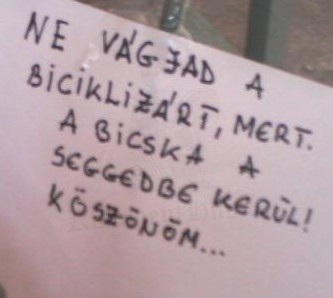 NE VÁGJAD A
BICIKLIZÁRT, MERT.
A BICSKA A
SEGGEDBE KERÜL!
KÖSZÖNÖM...